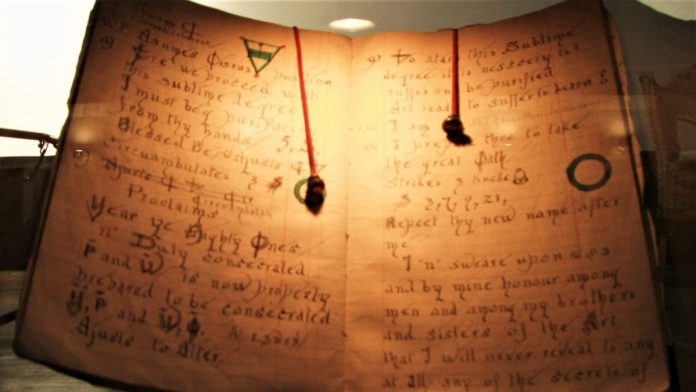 Assumes Osiris position
Ere we proceed with
this sublime degree
I must be purified
from thy hands
Blessed Be Adjusts
Circumambulates
Adjusts
Proclaims
Hear ye Mighty Ones
"n" Duly consecrated
P and W is now properly
prepared to be consecrated
H, P and W,
Ajusts to alter
To atain this Sublime
degree it is nessecery to
suffer and be purified
Art ready to suffer to Learn?
I am thee to take
the great Oath
Strikes 3 knells
3, 7, 9, 21,
Repeat thy new name after
me
I "n" sweare upon
and by mine honour among
men and among my brothers
and sisters of the Art
that I will never reveal to any
at all any of the secrets of